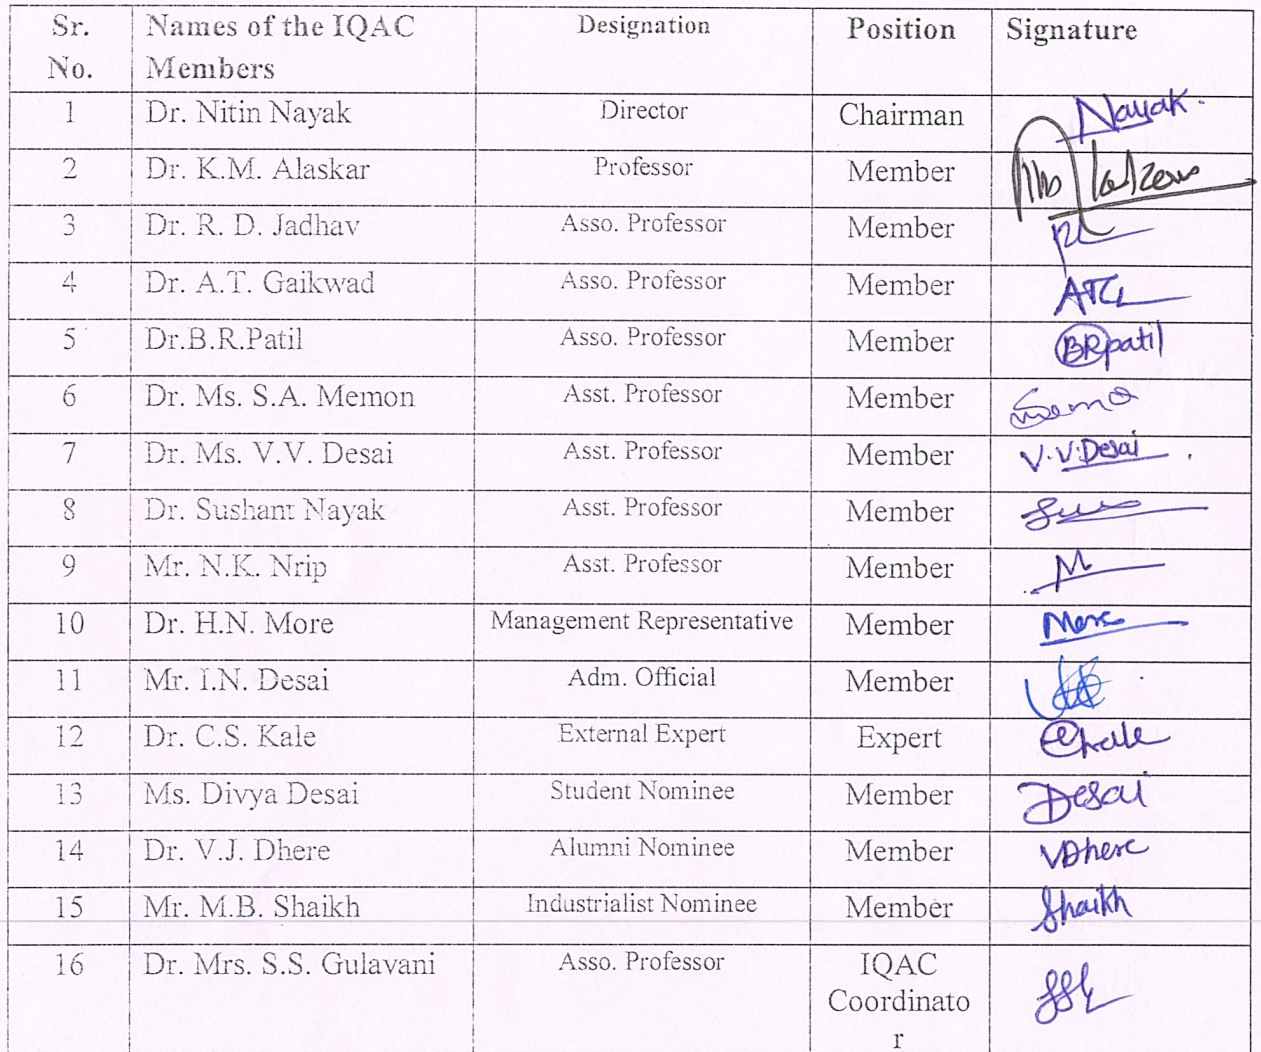 Sr. Names of the IQAC Designation Position Signature
No. Members
1 Dr. Nitin Nayak Director Chairman Nayak.
2 Dr. K.M. Alaskar Professor Member
3 Dr. R. D. Jadhav Asso. Professor Member
4 Dr. A.T. Gaikwad Asso. Professor Member
5 Dr.B.R.Patil Asso. Professor Member BRpatil
6 Dr. Ms. S.A. Memon Asst. Professor Member
7 Dr. Ms. V.V. Desai Asst. Professor Member V.V.Desai
8 Dr. Sushant Nayak Asst. Professor Member
9 Mr. N.K. Nrip Asst. Professor Member
10 Dr. H.N. More Management Representative Member More
11 Mr. I.N. Desai Adm. Official Member
12 Dr. C.S. Kale External Expert Expert
13 Ms. Divya Desai Student Nominee Member Desai
14 Dr. V.J. Dhere Alumni Nominee Member VDhere
15 Mr. M.B. Shaikh Industrialist Nominee Member Shaikh
16 Dr. Mrs. S.S. Gulavani Asso. Professor IQAC
Coordinato
r